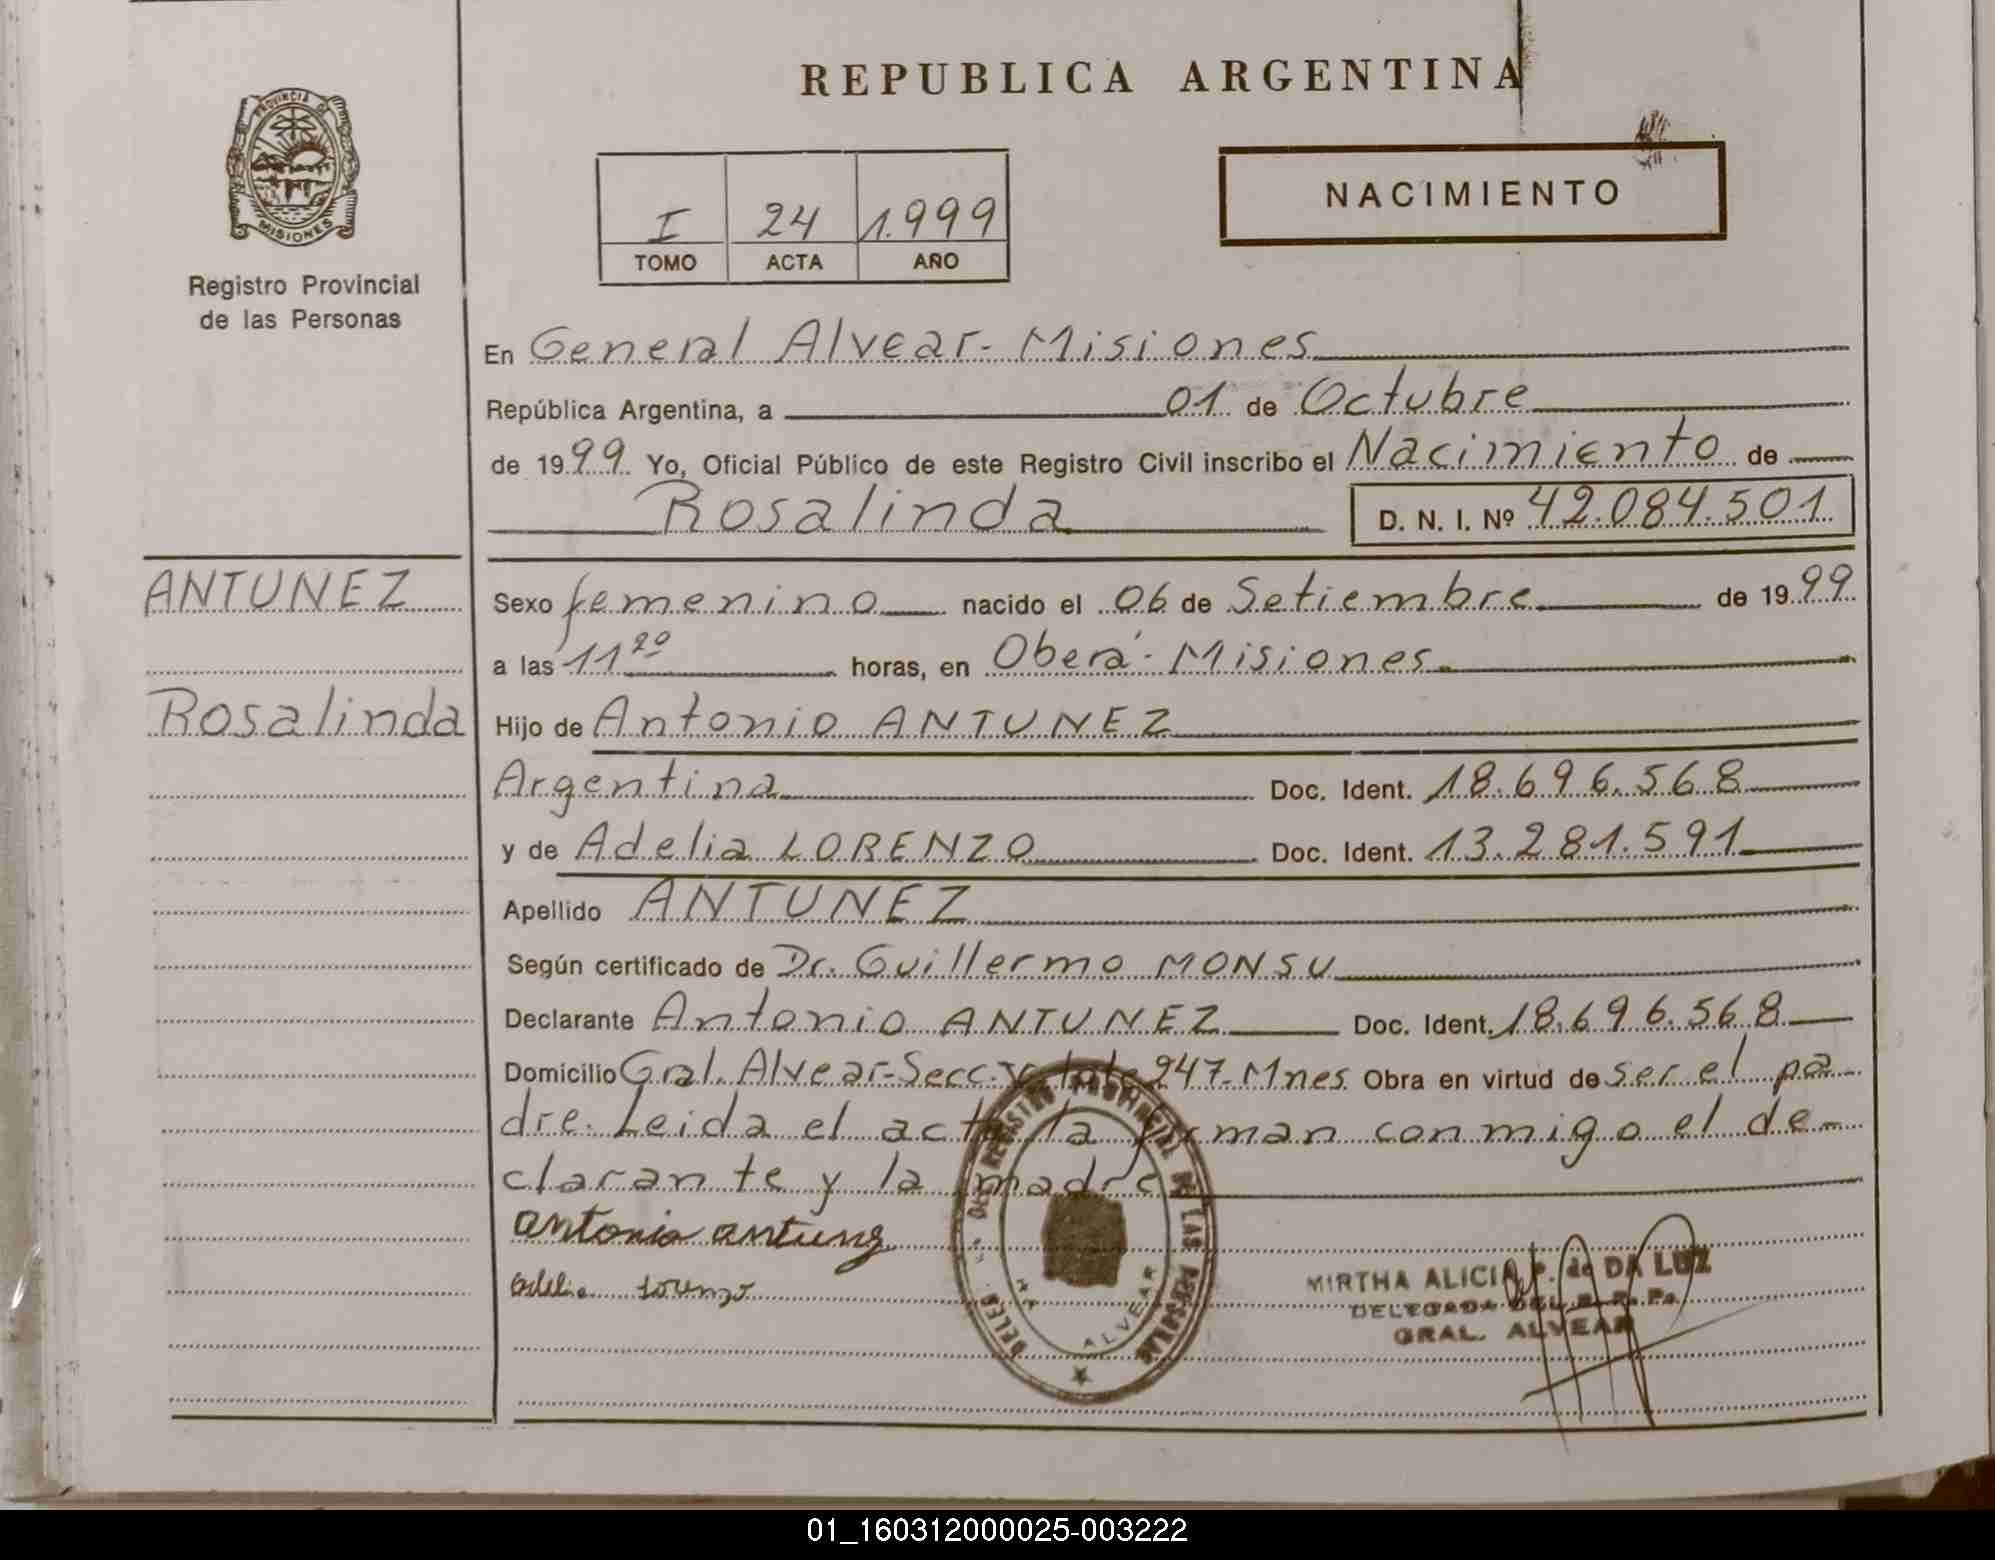 REPUBLICA ARGENTINA
PROVINCIA DE
MISIONES
Registro Provincial
de las Personas
I 24 1.999
TOMO ACTA AÑO
NACIMIENTO
En General Alvear - Misiones
República Argentina, a 01 de Octubre
de 1999 Yo, Oficial Público de este Registro Civil inscribo el Nacimiento de
Rosalinda D. N. I. Nº 42.084.501
ANTUNEZ
Rosalinda
Sexo femenino nacido el 06 de Setiembre de 1999
a las 11 20 horas, en Oberá - Misiones
Hijo de Antonio ANTUNEZ
Argentina Doc. Ident. 18.696.568
y de Adelia LORENZO Doc. Ident. 13.281.591
Apellido ANTUNEZ
Según certificado de Dr. Guillermo MONSU
Declarante Antonio ANTUNEZ Doc. Ident. 18.696.568
Domicilio Gral. Alvear - Secc. V. lote 247 - Mnes Obra en virtud de ser el pa-
dre. Leida el acta la firman conmigo el de-
clarante y la madre
antonio antunez
Adelia Lorenzo
REGISTRO PROVINCIAL DE LAS PERSONAS
ALVEAR
MIRTHA ALICIA P. de DA LUZ
DELEGADA DEL R. P. P.
GRAL. ALVEAR
01_160312000025-003222